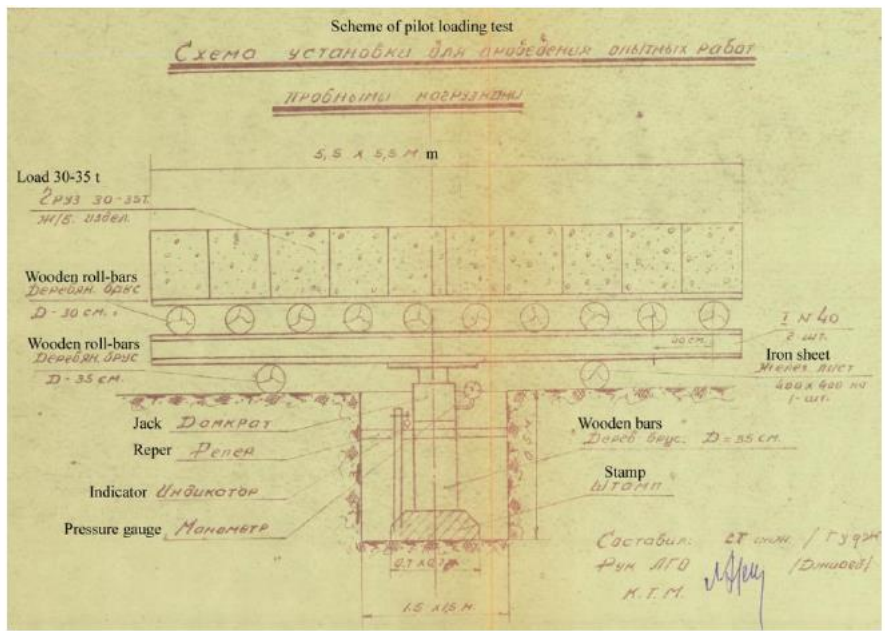 Scheme of pilot loading test
Схема установки для проведения опытных работ
пробными нагрузками
5,5 x 5,5 м m
Load 30-35 t
Груз 30-35т.
Ж/Б. издел.
Wooden roll-bars
Деревян. брус
D-30 см.
Wooden roll-bars
Деревян. брус
D-35 см.
I N 40
2-шт.
40 см.
Iron sheet
Желез. лист
400 x 400 мм
1-шт.
Jack Домкрат
Reper Репер
Indicator Индикатор
Pressure gauge Манометр
Wooden bars
Дерев брус. D=35 см.
Stamp
Штамп
0.7 x 0.7 м
1.5 x 1.5 м.
Составил:
Рук ЛГО
К.Г.М.